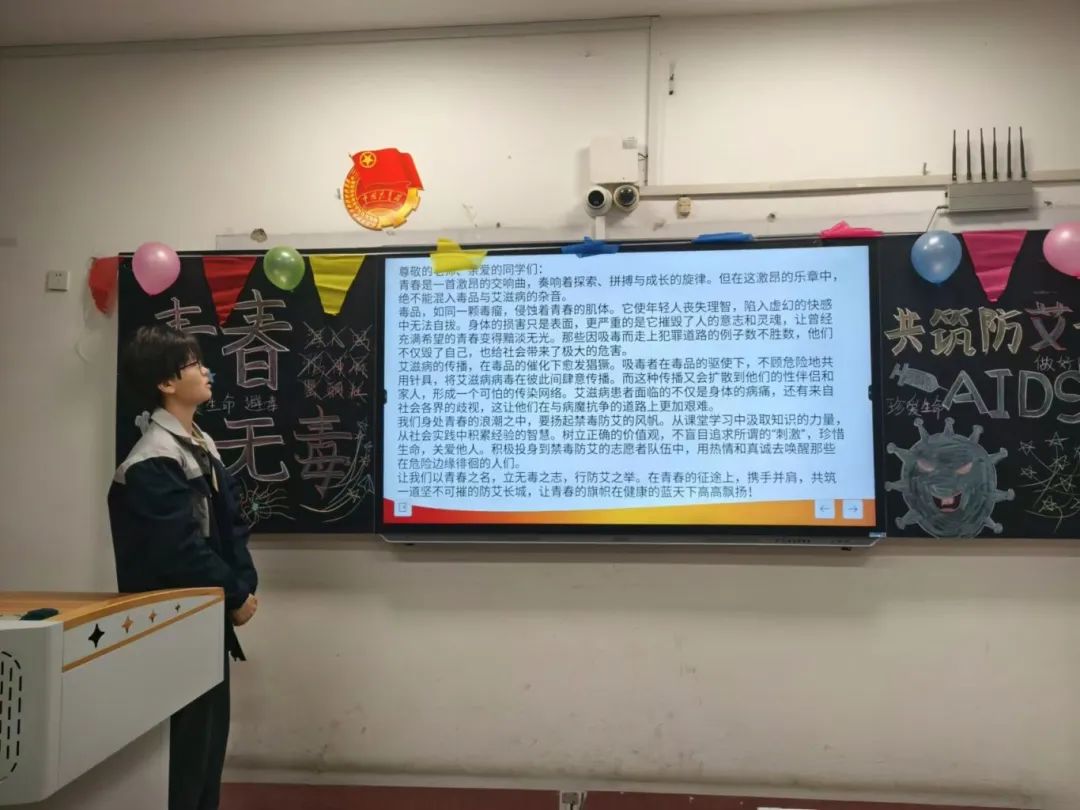 尊敬的老师、亲爱的同学们：
青春是一首激昂的交响曲，奏响着探索、拼搏与成长的旋律。但在这激昂的乐章中，
绝不能混入毒品与艾滋病的杂音。
毒品，如同一颗毒瘤，侵蚀着青春的肌体。它使年轻人丧失理智，陷入虚幻的快感
中无法自拔。身体的损害只是表面，更严重的是它摧毁了人的意志和灵魂，让曾经
充满希望的青春变得黯淡无光。那些因吸毒而走上犯罪道路的例子数不胜数，他们
不仅毁了自己，也给社会带来了极大的危害。
艾滋病的传播，在毒品的催化下愈发猖獗。吸毒者在毒品的驱使下，不顾危险地共
用针具，将艾滋病病毒在彼此间肆意传播。而这种传播又会扩散到他们的性伴侣和
家人，形成一个可怕的传染网络。艾滋病患者面临的不仅是身体的病痛，还有来自
社会各界的歧视，这让他们在与病魔抗争的道路上更加艰难。
我们身处青春的浪潮之中，要扬起禁毒防艾的风帆。从课堂学习中汲取知识的力量，
从社会实践中积累经验的智慧。树立正确的价值观，不盲目追求所谓的“刺激”，珍惜
生命，关爱他人。积极投身到禁毒防艾的志愿者队伍中，用热情和真诚去唤醒那些
在危险边缘徘徊的人们。
让我们以青春之名，立无毒之志，行防艾之举。在青春的征途上，携手并肩，共筑
一道坚不可摧的防艾长城，让青春的旗帜在健康的蓝天下高高飘扬！
青春
无毒
生命 避毒
共筑防艾
做好
AIDS
珍爱生命
中国共青团